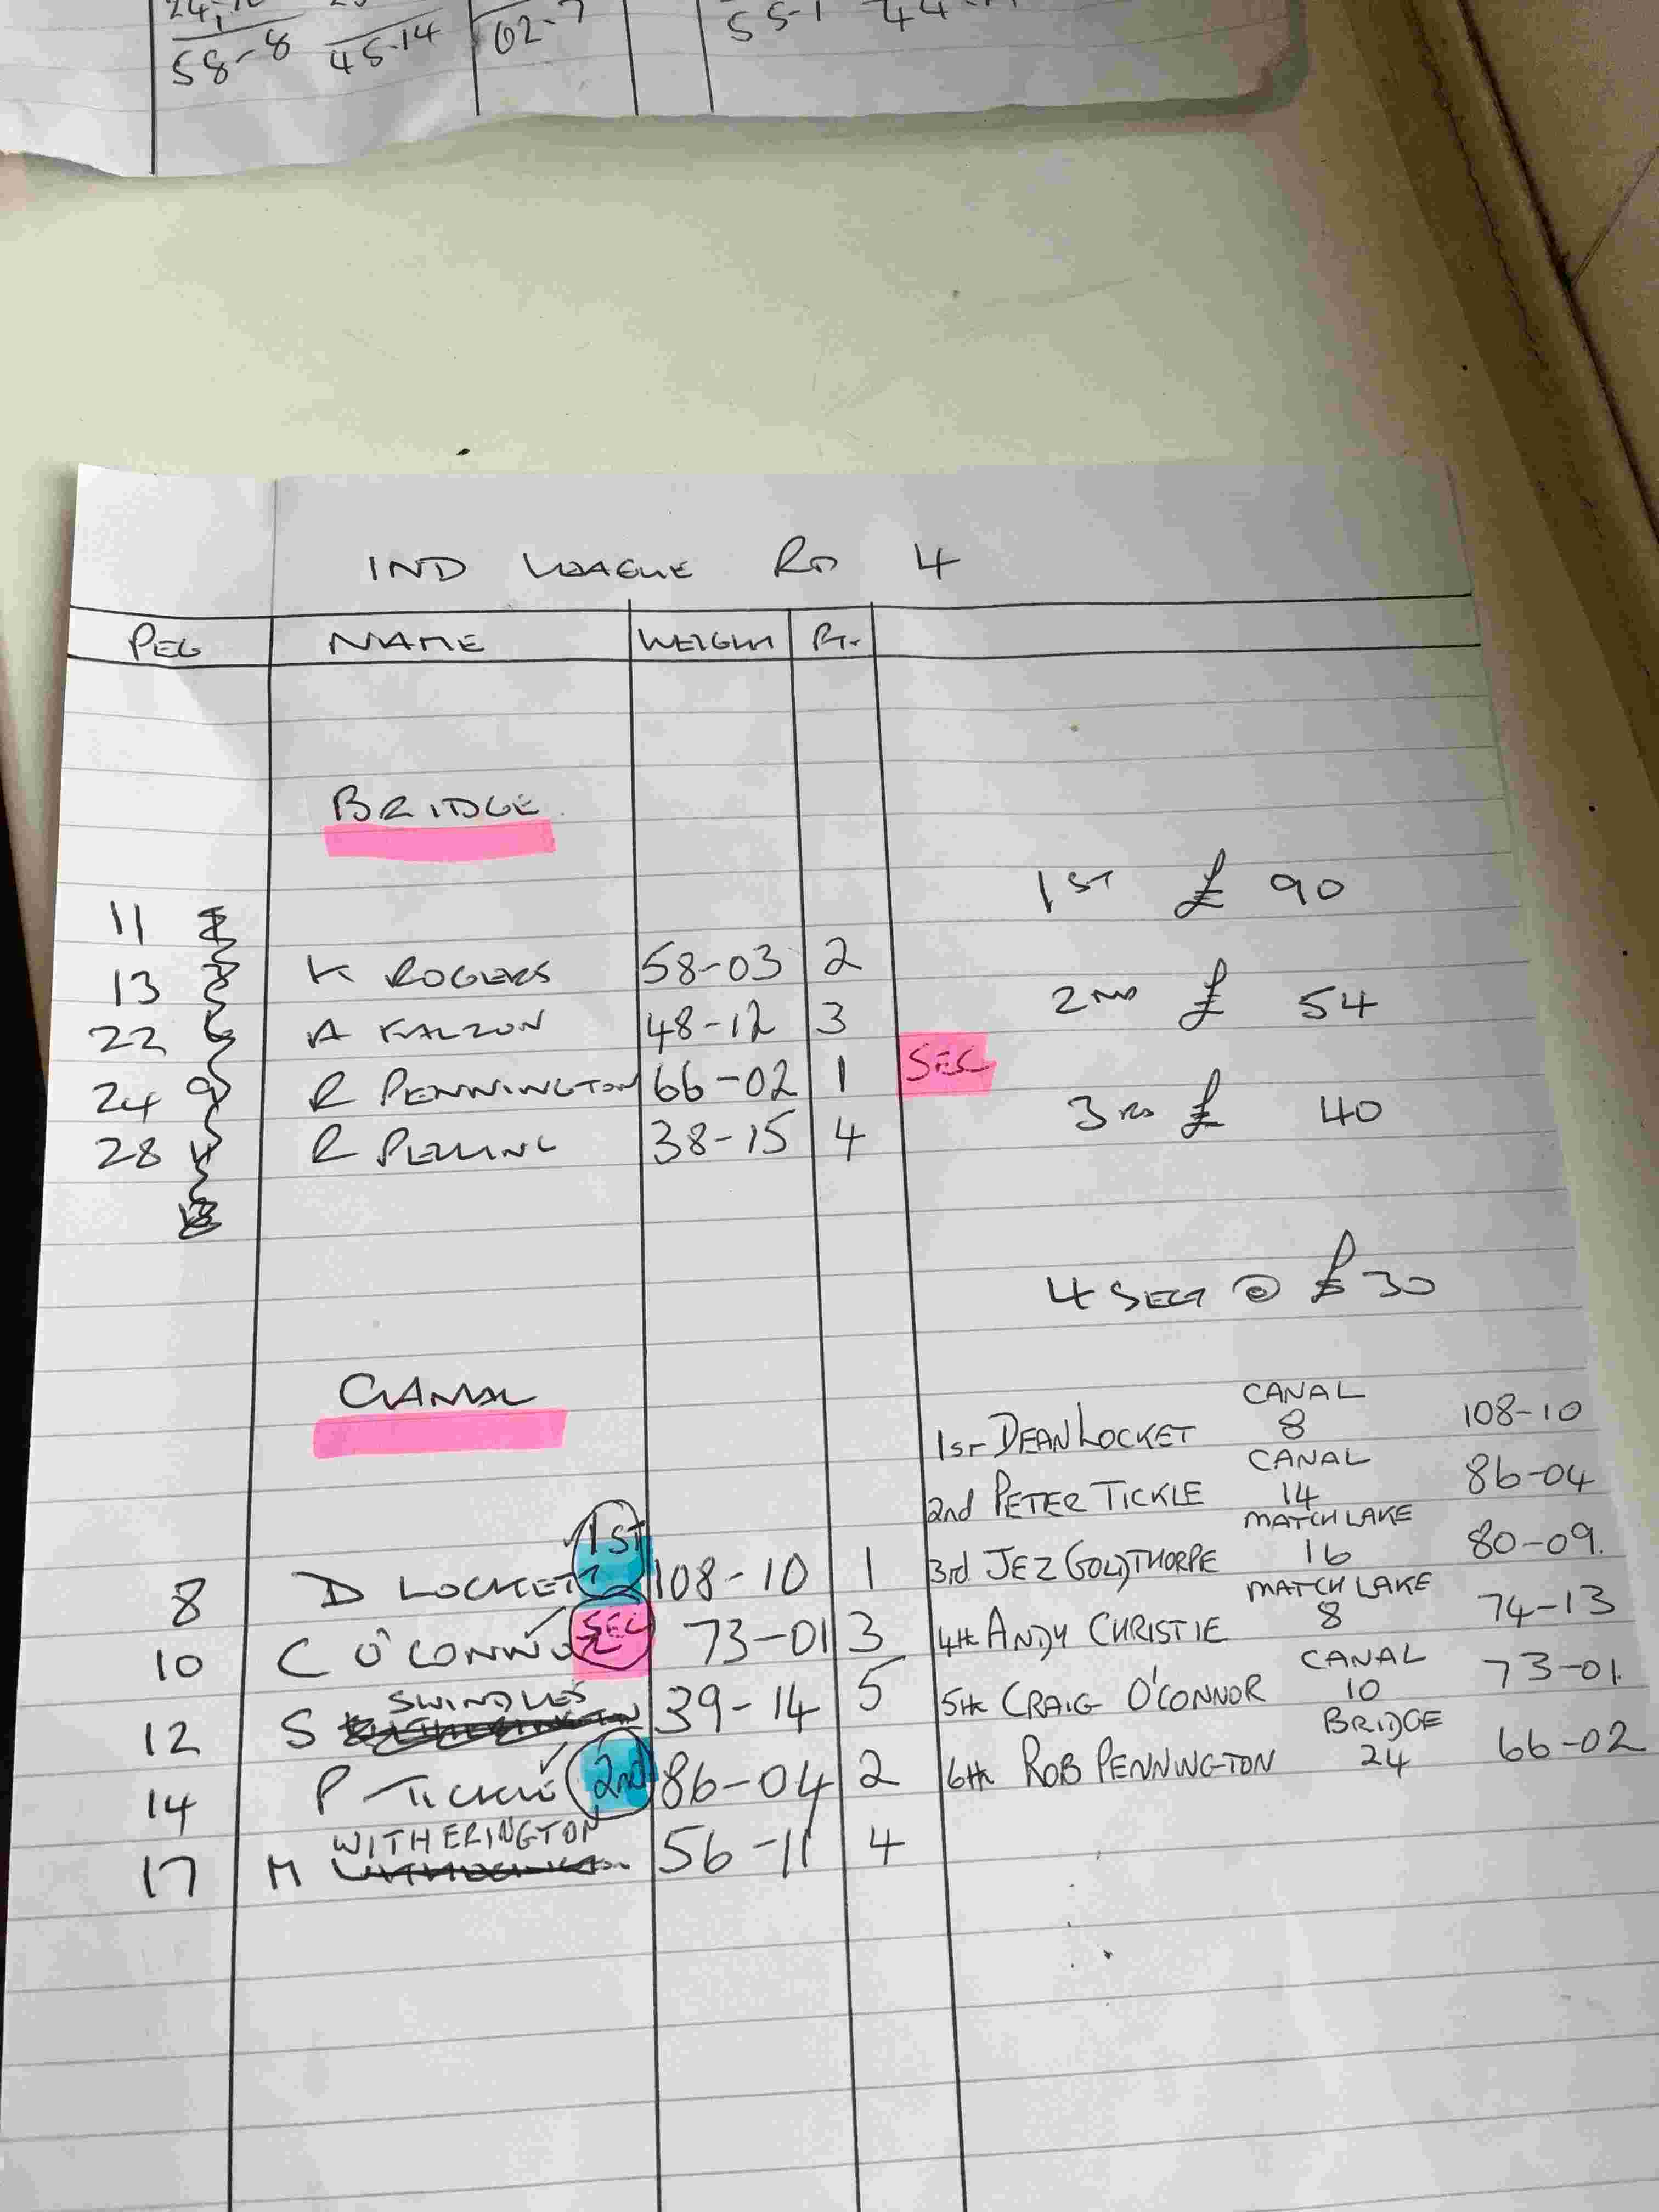 58-8 45-14 62-7 55-1
IND LEAGUE RD 4
PEG NAME WEIGHT PT.
BRIDGE
1ST £ 90
11
13 K ROGERS 58-03 2
2ND £ 54
22 A FALZON 48-12 3
24 R PENNINGTON 66-02 1 SEC
3RD £ 40
28 R PELLING 38-15 4
4 SECT @ £30
CANAL
1st DEAN LOCKET CANAL 8 108-10
2nd PETER TICKLE CANAL 14 86-04
3rd JEZ GOLDTHORPE MATCH LAKE 16 80-09.
4th ANDY CHRISTIE MATCH LAKE 8 74-13
5th CRAIG O'CONNOR CANAL 10 73-01.
6th ROB PENNINGTON BRIDGE 24 66-02
8 D LOCKETT 1ST 108-10 1
10 C O'CONNOR SEC 73-01 3
12 S SWINDLES 39-14 5
14 P TICKLE 2nd 86-04 2
17 M WITHERINGTON 56-11 4